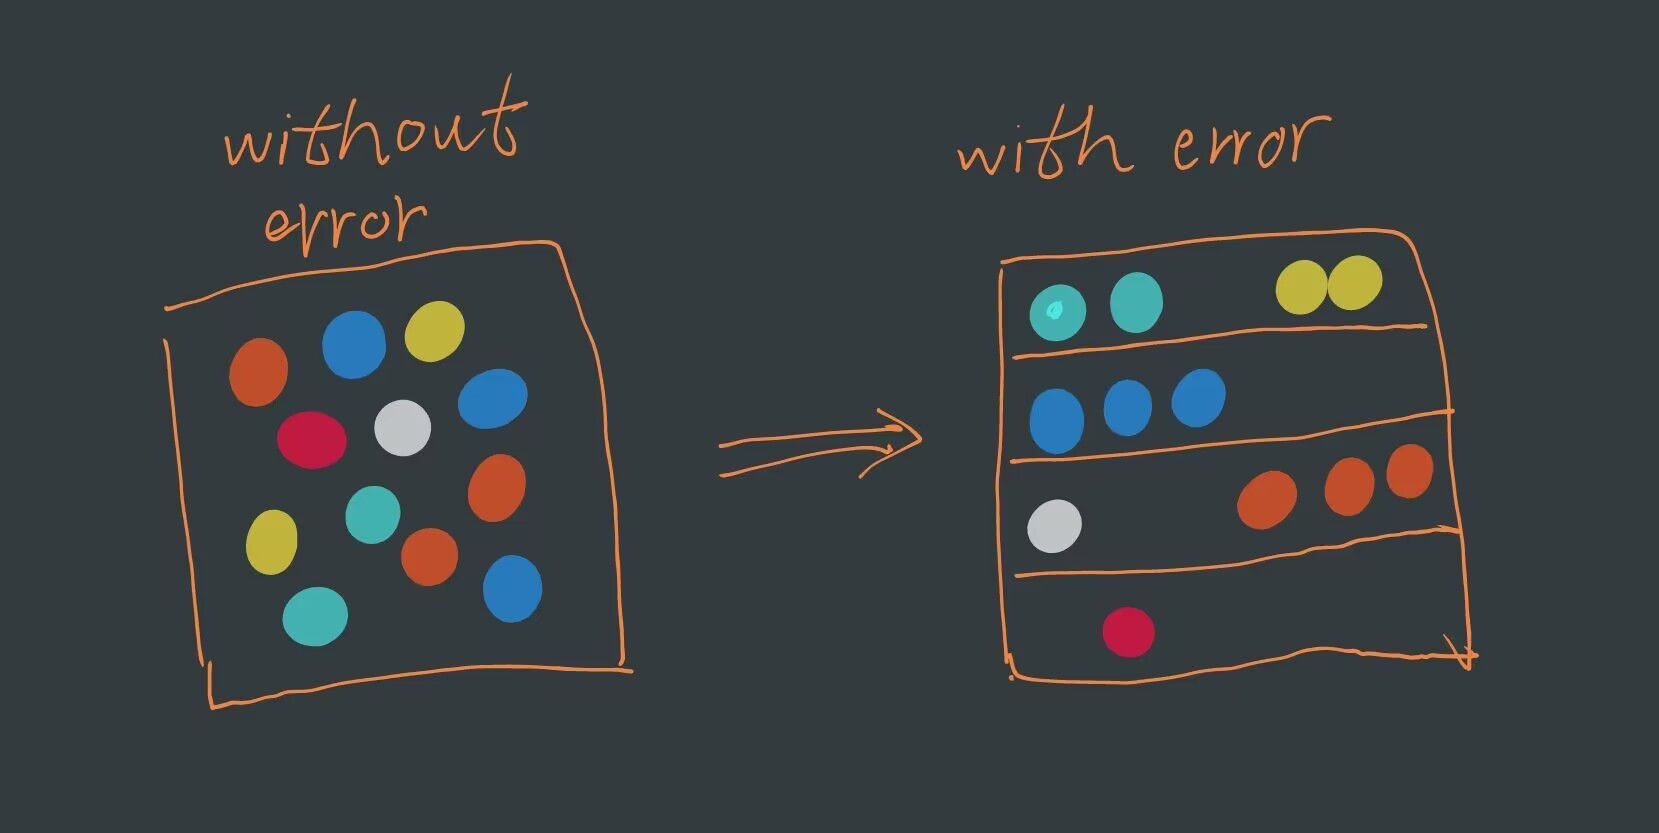 without
error
with error